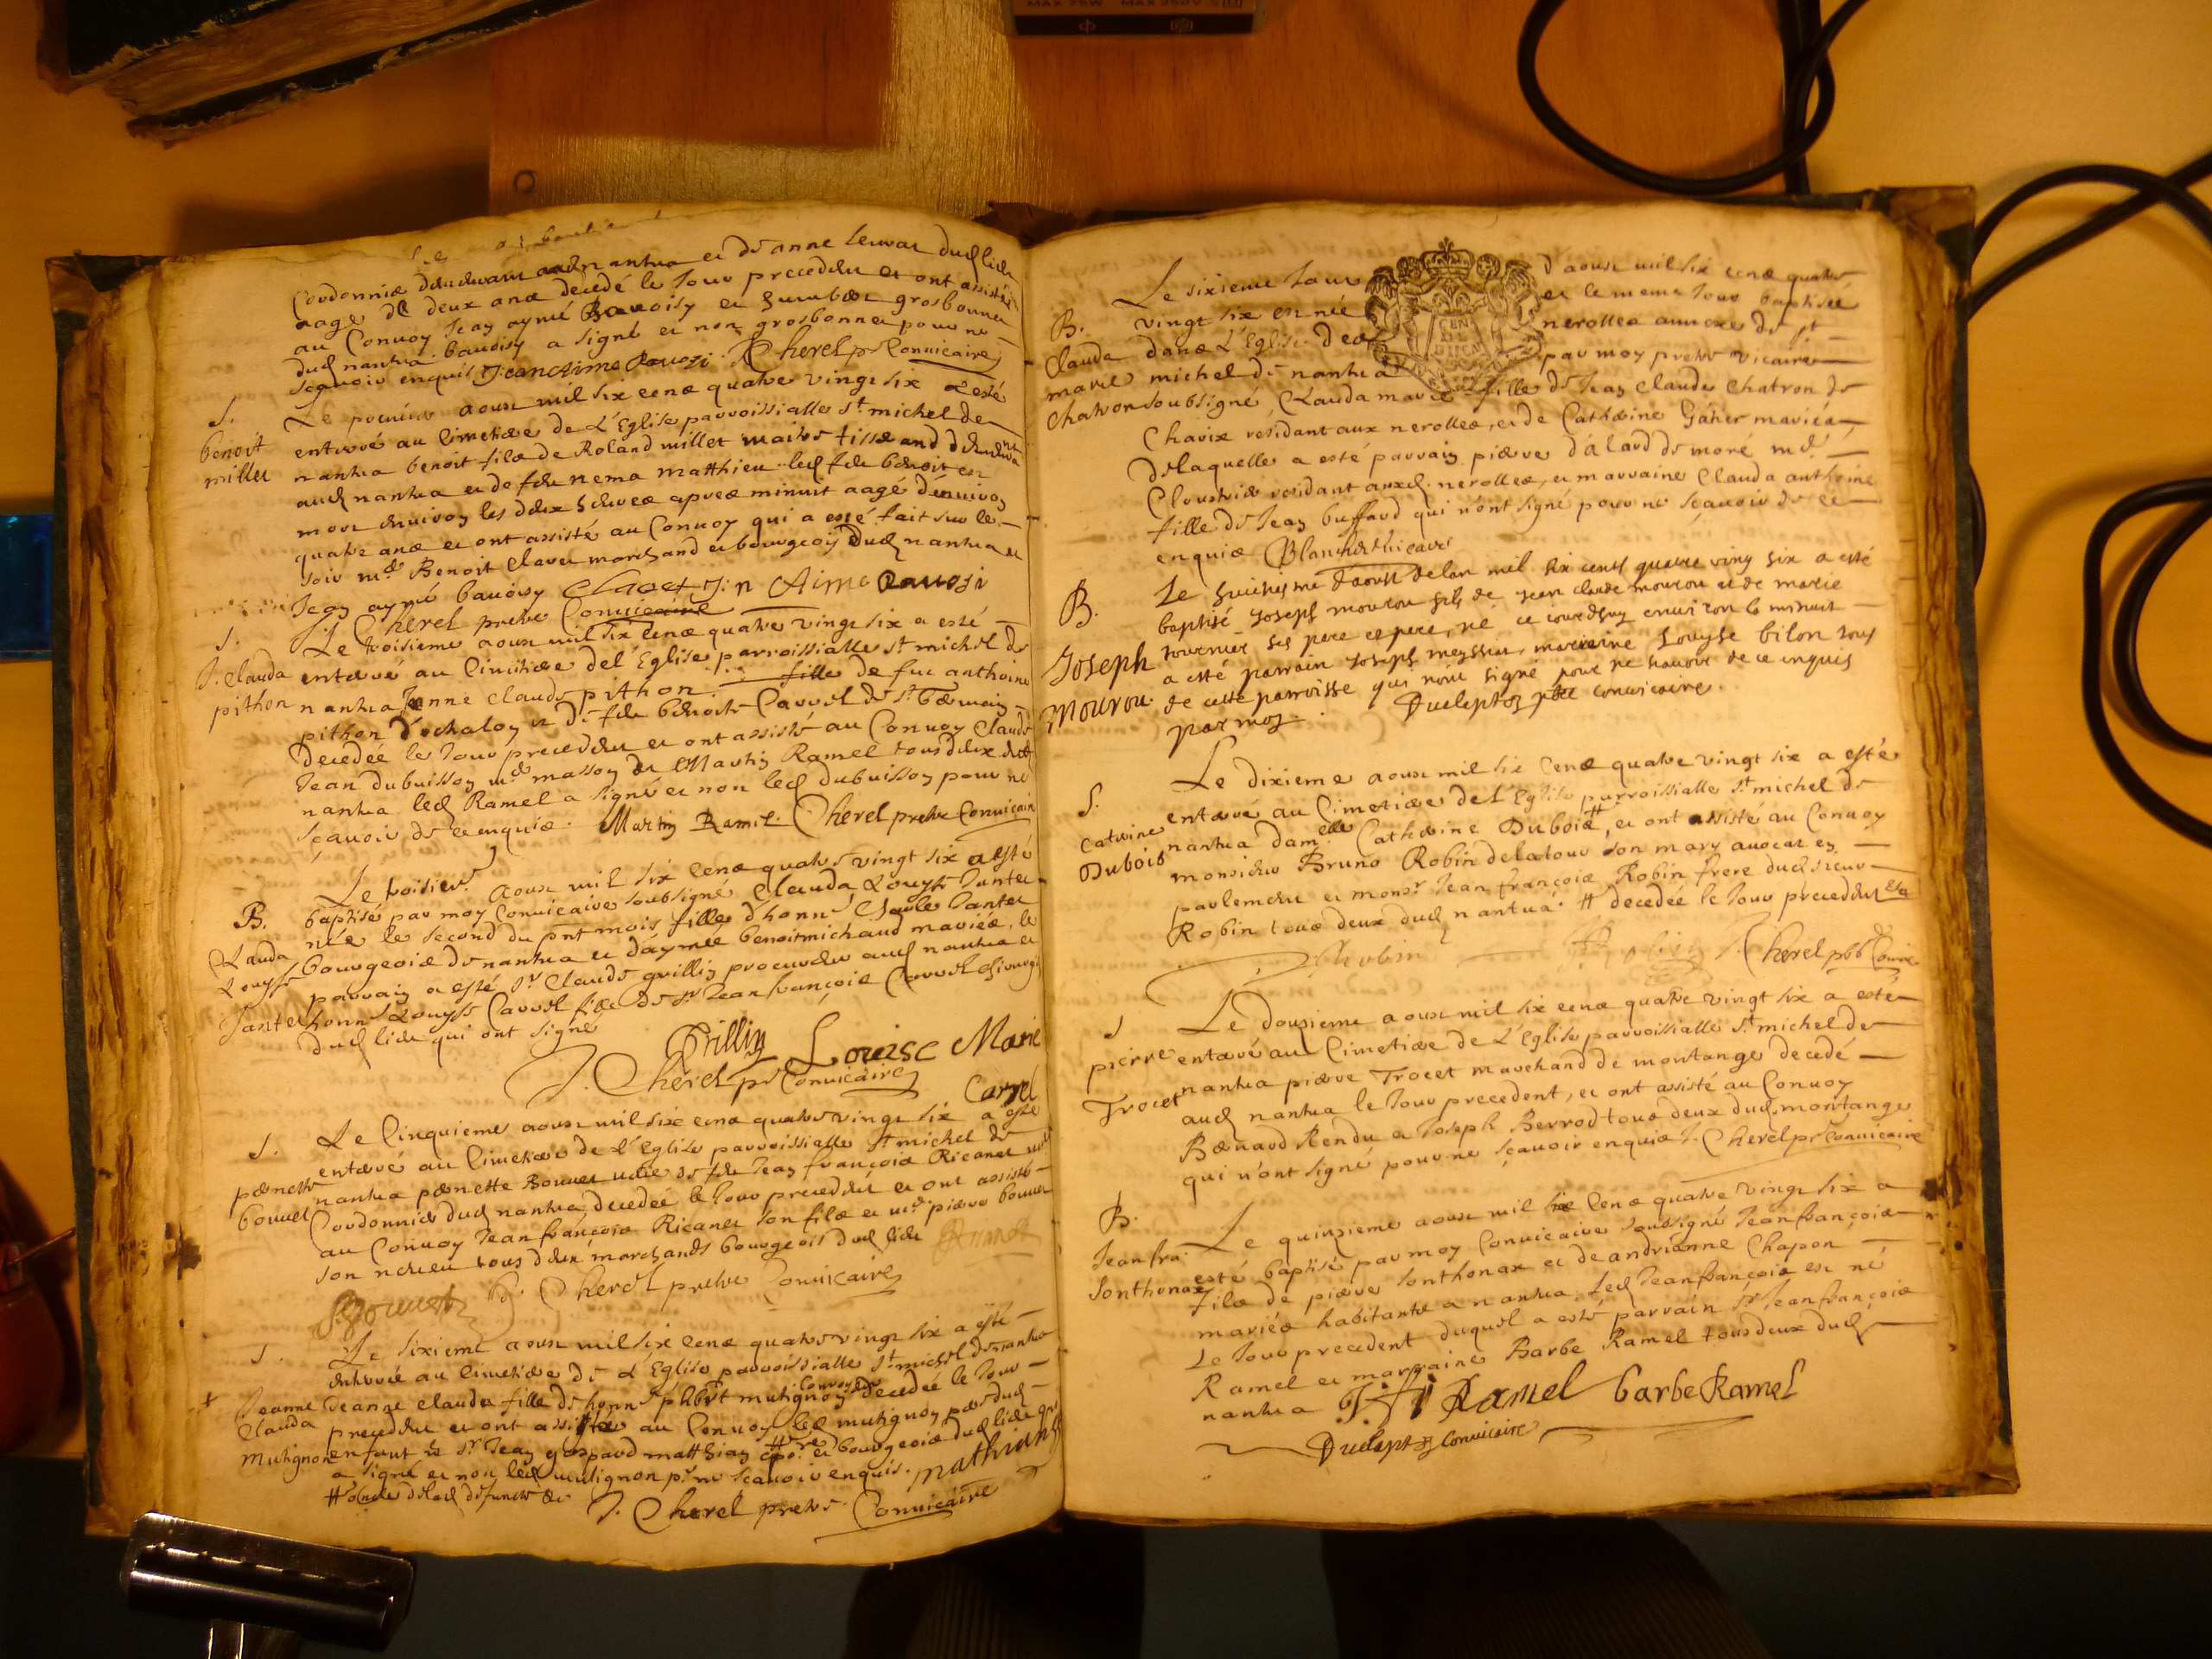 Cordonnier audᵗ nantua et de anne
aage de deux ans decedé le Jour precedent et ont assisté
au Convoy Jean aymé Bavoisy et grosbonnet
dud nantua. bavoisy a signé et non grosbonnet pour ne
sçavoir enquis Jean Aimé Bavosi. Cherel pr Convicaire
S.
benoit
millet
Le premier aoust mil six cens quatre vingt six a esté
enterré au Cimetiere de L'Eglise parroissialle St michel de
nantua benoit fils de Roland millet maitre tisserand
aud nantua et de fue nema matthieu led feu benoit est
mort environ les deux heures apres minuit aagé d'environ
quatre ans et ont assisté au Convoy qui a esté fait sur le
soir md Benoit Claver marchand et bourgeois dud nantua et
Jean aymé bavoisy Aimé Bavosi
Cherel prebtre Convicaire
S.
J. clauda
pithon
Le troisieme aoust mil six cens quatre vingt six a esté
enterré au Cimetiere de l'Eglise parroissialle st michel de
nantua Jenne claude pithon fille de feu anthoine
pithon d'echalon et de
decedée le Jour precedent et ont assisté au Convoy Claude
Jean dubuisson me masson et Martin Ramel tous deux dud
nantua led Ramel a signé et non led dubuisson pour ne
sçavoir de ce enquis. Martin Ramel. Cherel prebtre Convicaire
B.
Clauda
Louyse
Jantet
Le troisieme aoust mil six cens quatre vingt six a esté
baptisé par moy Convicaire soubsigné Clauda Louyse Jantet
née le second du pnt mois fille d'honn Charle Jantet
bourgeois de nantua et d'aymée benoitmichaud mariés, le
parrain a esté Sr Claude guilliy procureur aud nantua et
honn Louyse Carrel fille de sr Jean françois Carrel
dud lieu qui ont signé
Louise Marie
Carrel
J. Cherel pr Convicaire
S.
pernette
bouvet
Le Cinquieme aoust mil six cens quatre vingt six a esté
enterré au Cimetiere de l'Eglise parroissialle st michel de
nantua pernette Bouvet veuve de feu Jean françois Ricanet
Cordonnier dud nantua, decedée le Jour precedent et ont assisté
au Convoy Jean françois Ricanet son fils et md pierre bouvet
son neveu tous deux marchands bourgeois dud lieu
Bouvet J. Cherel prebtre Convicaire
S.
Jeanne
Clauda
Mutignon
Le sixieme aoust mil six cens quatre vingt six a esté
enterrée au Cimetiere de L'Eglise parroissialle st michel de nantua
Jeanne Clauda fille de honn mutignon decedée le Jour
precedent et ont assisté au Convoy led mutignon pere dud
enfant et sr Jean gaspard matthian et bourgeois dud lieu qui
a signé et non led mutignon pr ne sçavoir enquis. mathian
J. Cherel prebtre Convicaire
B.
Clauda
marie
chatron
Le sixieme Jour d'aoust mil six cens quatre
vingt six est née et le meme Jour baptisée
dans L'Eglise des nerolles annexe de st
michel de nantua par moy prebtre vicaire
soubsigné, Clauda marie fille de Jean Claude Chatron de
Charix residant aux nerolles, et de Catherine mariés,
delaquelle a esté parrain pierre
residant auxd nerolles, et marraine Clauda anthoine
fille de Jean buffard qui n'ont signé pour ne sçavoir de ce
enquis Blanchet vicaire
B.
Joseph
Mouron
Le huitiesme d'aoust delan mil six cents quatre ving six a esté
baptisé Joseph mouron fils de Jean claude mouron et de marie
tournier ses pere et mere, né ce jourdhuy environ le minuit
a esté parrain Joseph meyssiat, marreine Louyse bilon tous
de cette parroisse qui n'ont signé pour ne scavoir de ce enquis
par moy. convicaire.
S.
Catrine
Dubois
Le dixieme aoust mil six cens quatre vingt six a esté
enterré au Cimetiere de l'Eglise parroissialle st michel de
nantua damelle Catherine Dubois, et ont assisté au Convoy
monsieur Bruno Robin delatour son mary avocat en
parlement et monsr Jean françois Robin frere dud sieur
Robin tous deux dud nantua. # decedée le Jour precedent
Robin Cherel pbr Convic
S
pierre
Trocet
Le douzieme aoust mil six cens quatre vingt six a esté
enterré au Cimetiere de L'Eglise parroissialle st michel de
nantua pierre Trocet marchand de montange decedé
aud nantua le Jour precedent, et ont assisté au Convoy
Bernard Rendu et Joseph Berrod tous deux dud montange
qui n'ont signé pour ne sçavoir enquis J. Cherel pr Convicaire
B.
Jean fra.
Sonthonax
Le quinzieme aoust mil six cens quatre vingt six a
esté baptisé par moy Convicaire soussigné Jean françois
fils de pierre Sonthonax et de andrianne Chapon
mariés habitants a nantua, led Jean françois est né
Le Jour precedent duquel a esté parrain sr Jean françois
Ramel et marraine Barbe Ramel tous deux dud
nantua Ramel barbe Ramel
Convicaire